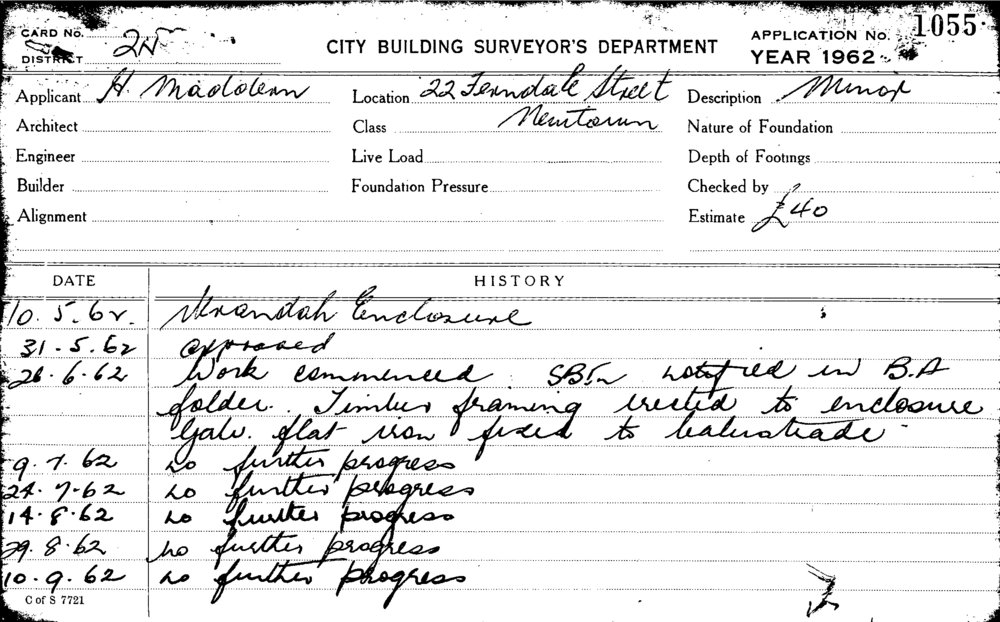 CARD No.
DISTRICT 2N
CITY BUILDING SURVEYOR'S DEPARTMENT
APPLICATION No. 1055
YEAR 1962
Applicant H. Maddern
Location 22 Ferndale Street
Newtown
Description Minor
Architect
Class
Nature of Foundation
Engineer
Live Load
Depth of Footings
Builder
Foundation Pressure
Checked by
Alignment
Estimate £40
DATE HISTORY
10.5.62. Verandah Enclosure
31.5.62 approved
26.6.62 Work commenced. notified in B.A
folder. Timber framing erected to enclosure
Galv. flat iron fixed to balustrade
9.7.62 no further progress
24.7.62 no further progress
14.8.62 no further progress
29.8.62 no further progress
10.9.62 no further progress
C of S 7721